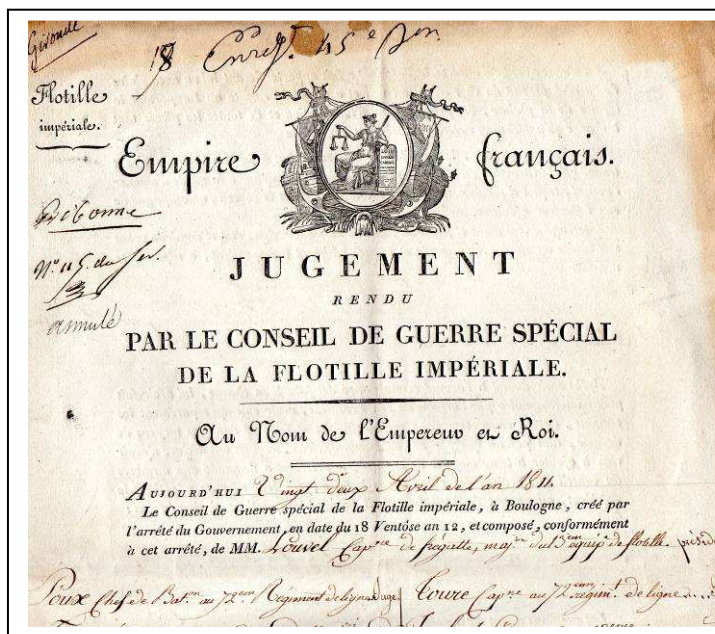 Gironde
18 Enreg. 45e Son
Flotille
impériale.
Empire français.
Libonne
N.º 115. du
annulé
JUGEMENT
RENDU
PAR LE CONSEIL DE GUERRE SPÉCIAL
DE LA FLOTILLE IMPÉRIALE.
Au Nom de l'Empereur et Roi.
AUJOURD'HUI Vingt deux Avril de l'an 1811.
Le Conseil de Guerre spécial de la Flotille impériale, à Boulogne, créé par
l'arrêté du Gouvernement, en date du 18 Ventôse an 12, et composé, conformément
à cet arrêté, de MM. Louvel Capne de frégatte, majr du 5em équip. de flotille. préside
Chef de Batn au 72em Régiment de ligne Juge. Capne au 72em régimt de ligne